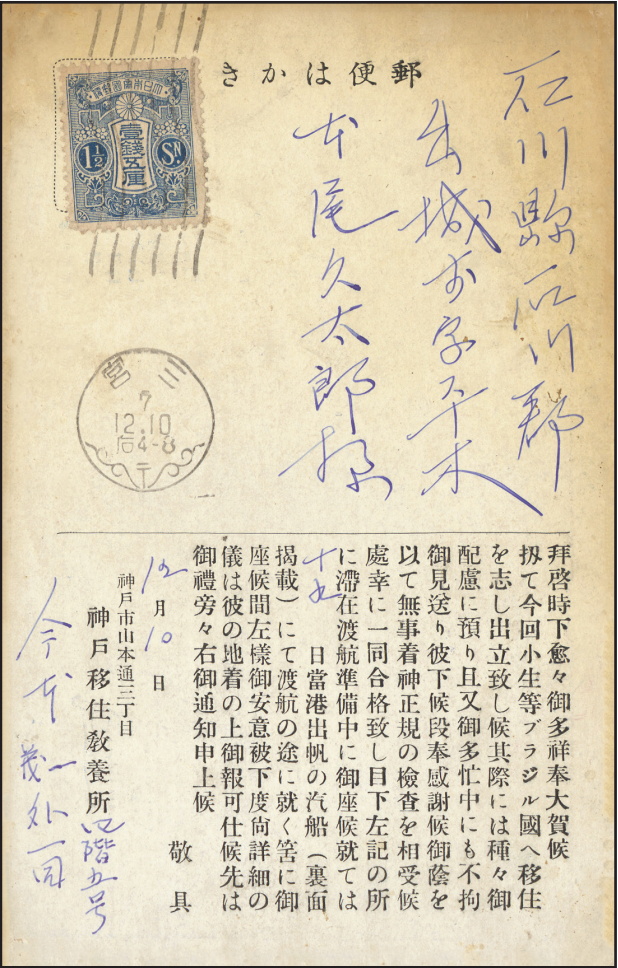 郵便はかき
大日本帝國郵便
壹錢五厘
1½ Sn
石川縣石川郡
出城村字平木
本尾久太郎様
三宮
7
12.10
后4-8
拜啓時下愈々御多祥奉大賀候
扨て今回小生等ブラジル國へ移住
を志し出立致し候其際には種々御
配慮に預り且又御多忙中にも不拘
御見送り彼下候段奉感謝候御蔭を
以て無事着神正規の檢査を相受候
處幸に一同合格致し目下左記の所
に滯在渡航準備中に御座候就ては
十五日當港出帆の汽船(裏面
揭載)にて渡航の途に就く筈に御
座候間左樣御安意被下度尙詳細の
儀は彼の地着の上御報可仕候先は
御禮旁々右御通知申上候
敬具
12月10日
神戸市山本通三丁目
神戸移住敎養所 四階五号
今本茂一外一同